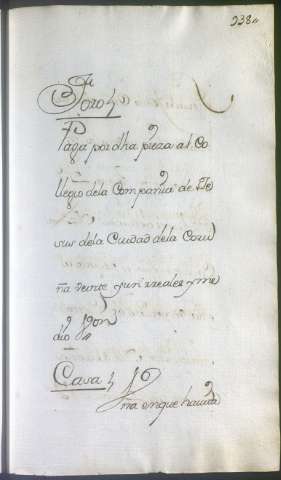 238
Foro
Paga por dha pieza al Co
llegio dela Compañia de Je
sus dela Ciudad dela Coru
ña veinte y un rreales y me
dio
Casa
ña en que havita